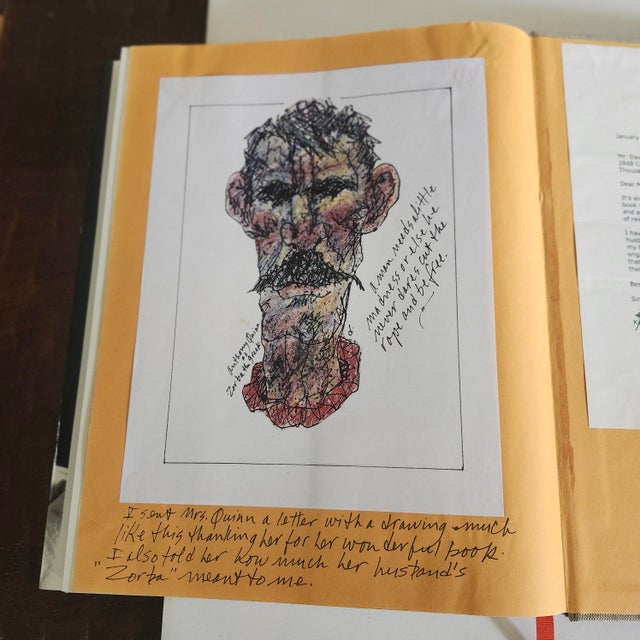 a man needs a little
madness or else he
never dares cut the
rope and be free.
Anthony Quinn
as
Zorba the Greek
I sent Mrs. Quinn a letter with a drawing much
like this thanking her for her wonderful book.
I also told her how much her husband's
"Zorba" meant to me.
January
Mr. Da
2848 C
Thousa
Dear M
It's al
book
and
of re
I hav
hus
my
orig
that
the
Bes